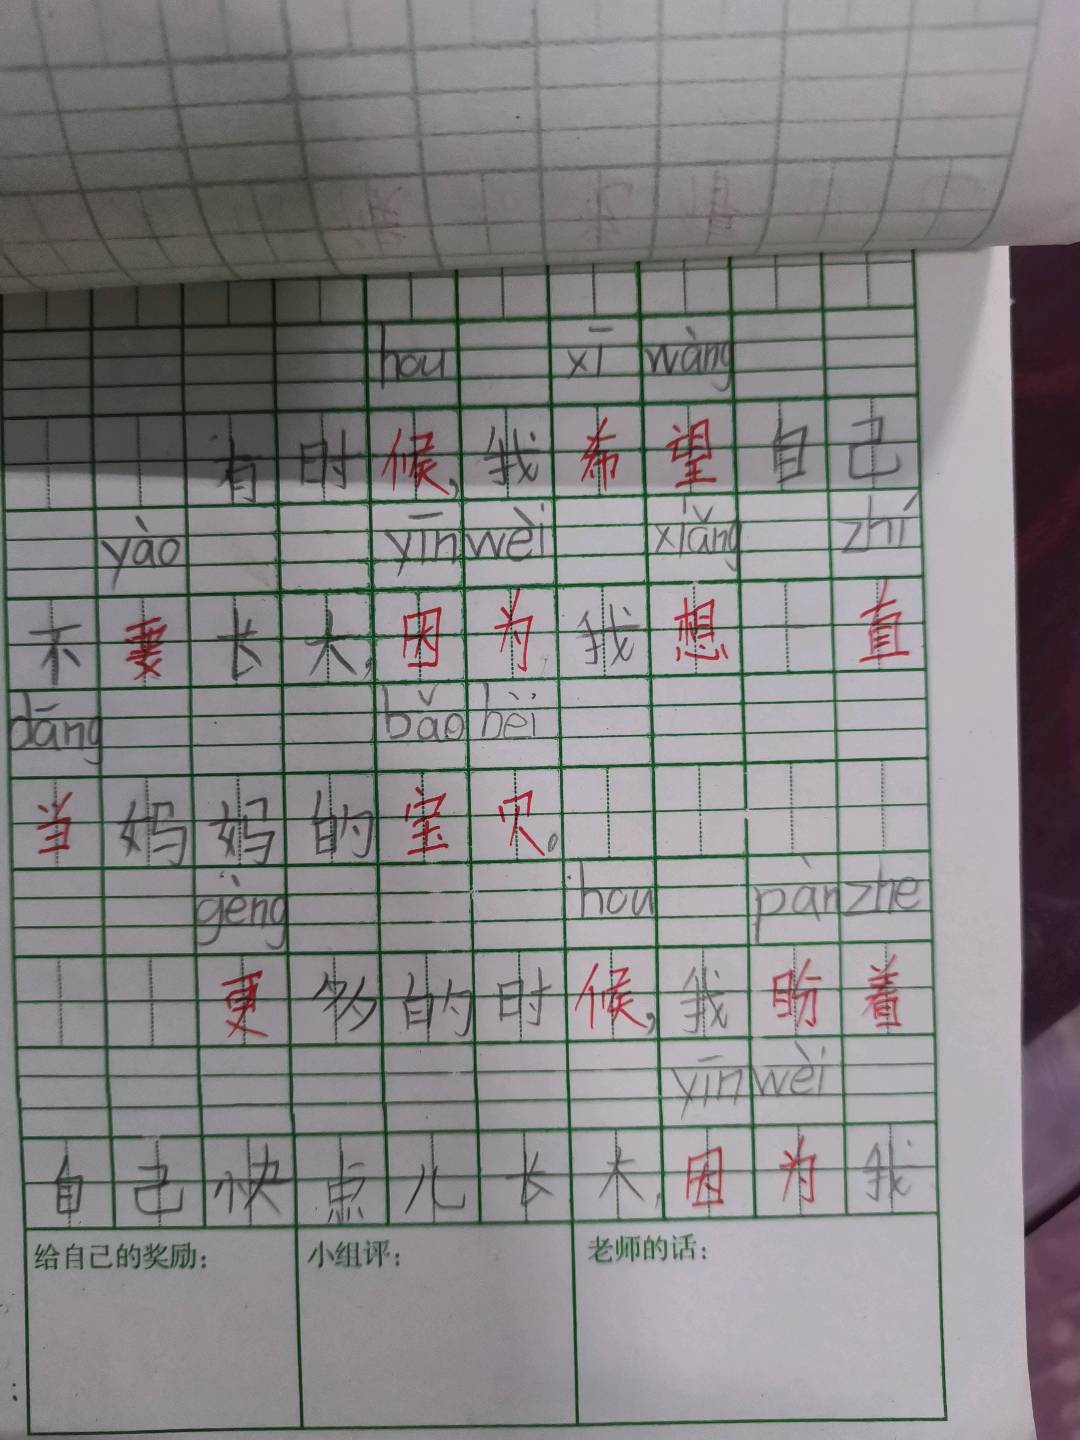 hou xī wàng
有时候，我希望自己
yào yīn wèi xiǎng zhí
不要长大，因为我想一直
dāng bǎo bèi
当妈妈的宝贝。
gèng hou pàn zhe
更多的时候，我盼着
yīn wèi
自己快点儿长大，因为我
给自己的奖励： 小组评： 老师的话：